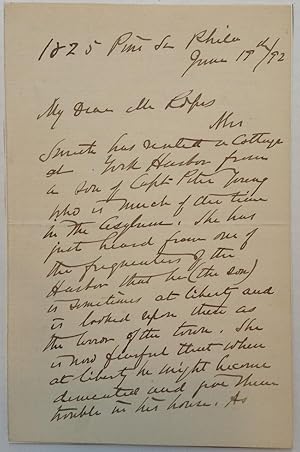 1825 Pine St Phila
June 17th/92
My Dear Mr Ropes
Mrs
Smith has rented a Cottage
at York Harbor from
a son of Capt. Peter Young
who is much of the time
in the Asylum. She has
just heard from one of
the frequenters of the
Harbor that he (the son)
is sometimes at liberty and
is looked upon there as
the terror of the town. She
is now fearful that when
at liberty he might become
demented and give them
trouble in his house. As